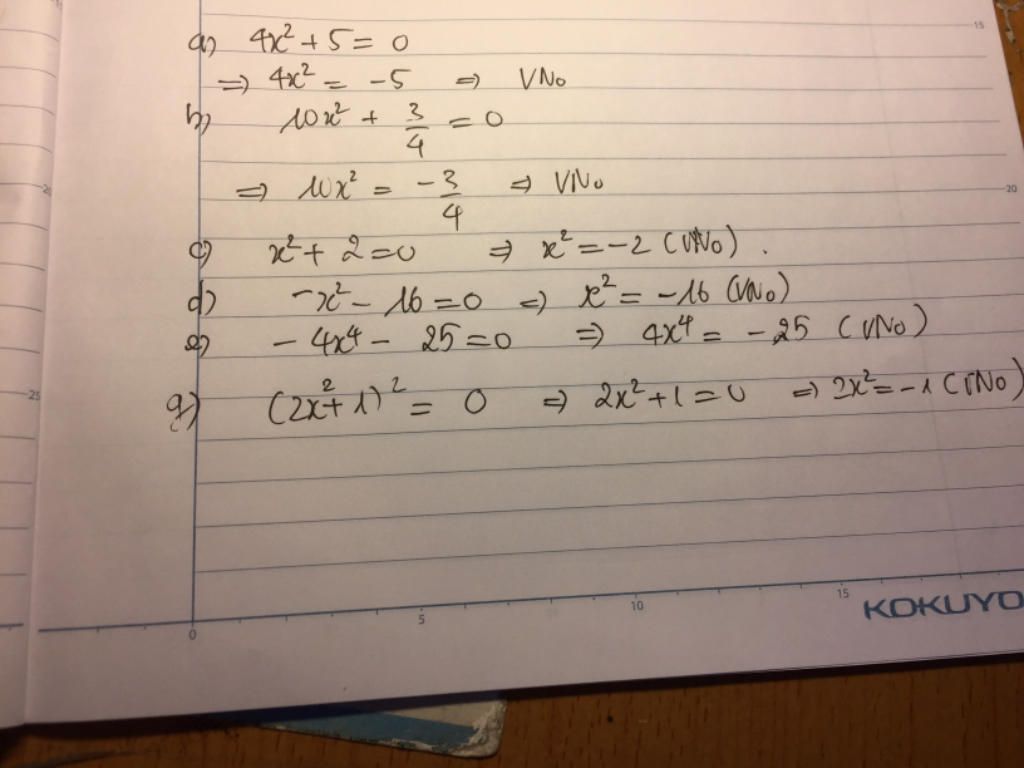 a) 4x² + 5 = 0
⇒ 4x² = -5 ⇒ VNo
b) 10x² + 3/4 = 0
⇒ 10x² = -3/4 ⇒ VNo
c) x² + 2 = 0 ⇒ x² = -2 (VNo).
d) -x² - 16 = 0 ⇒ x² = -16 (VNo)
e) - 4x⁴ - 25 = 0 ⇒ 4x⁴ = -25 (VNo)
g) (2x² + 1)² = 0 ⇒ 2x² + 1 = 0 ⇒ 2x² = -1 (VNo)
15
20
20
25
0 5 10 15
KOKUYO